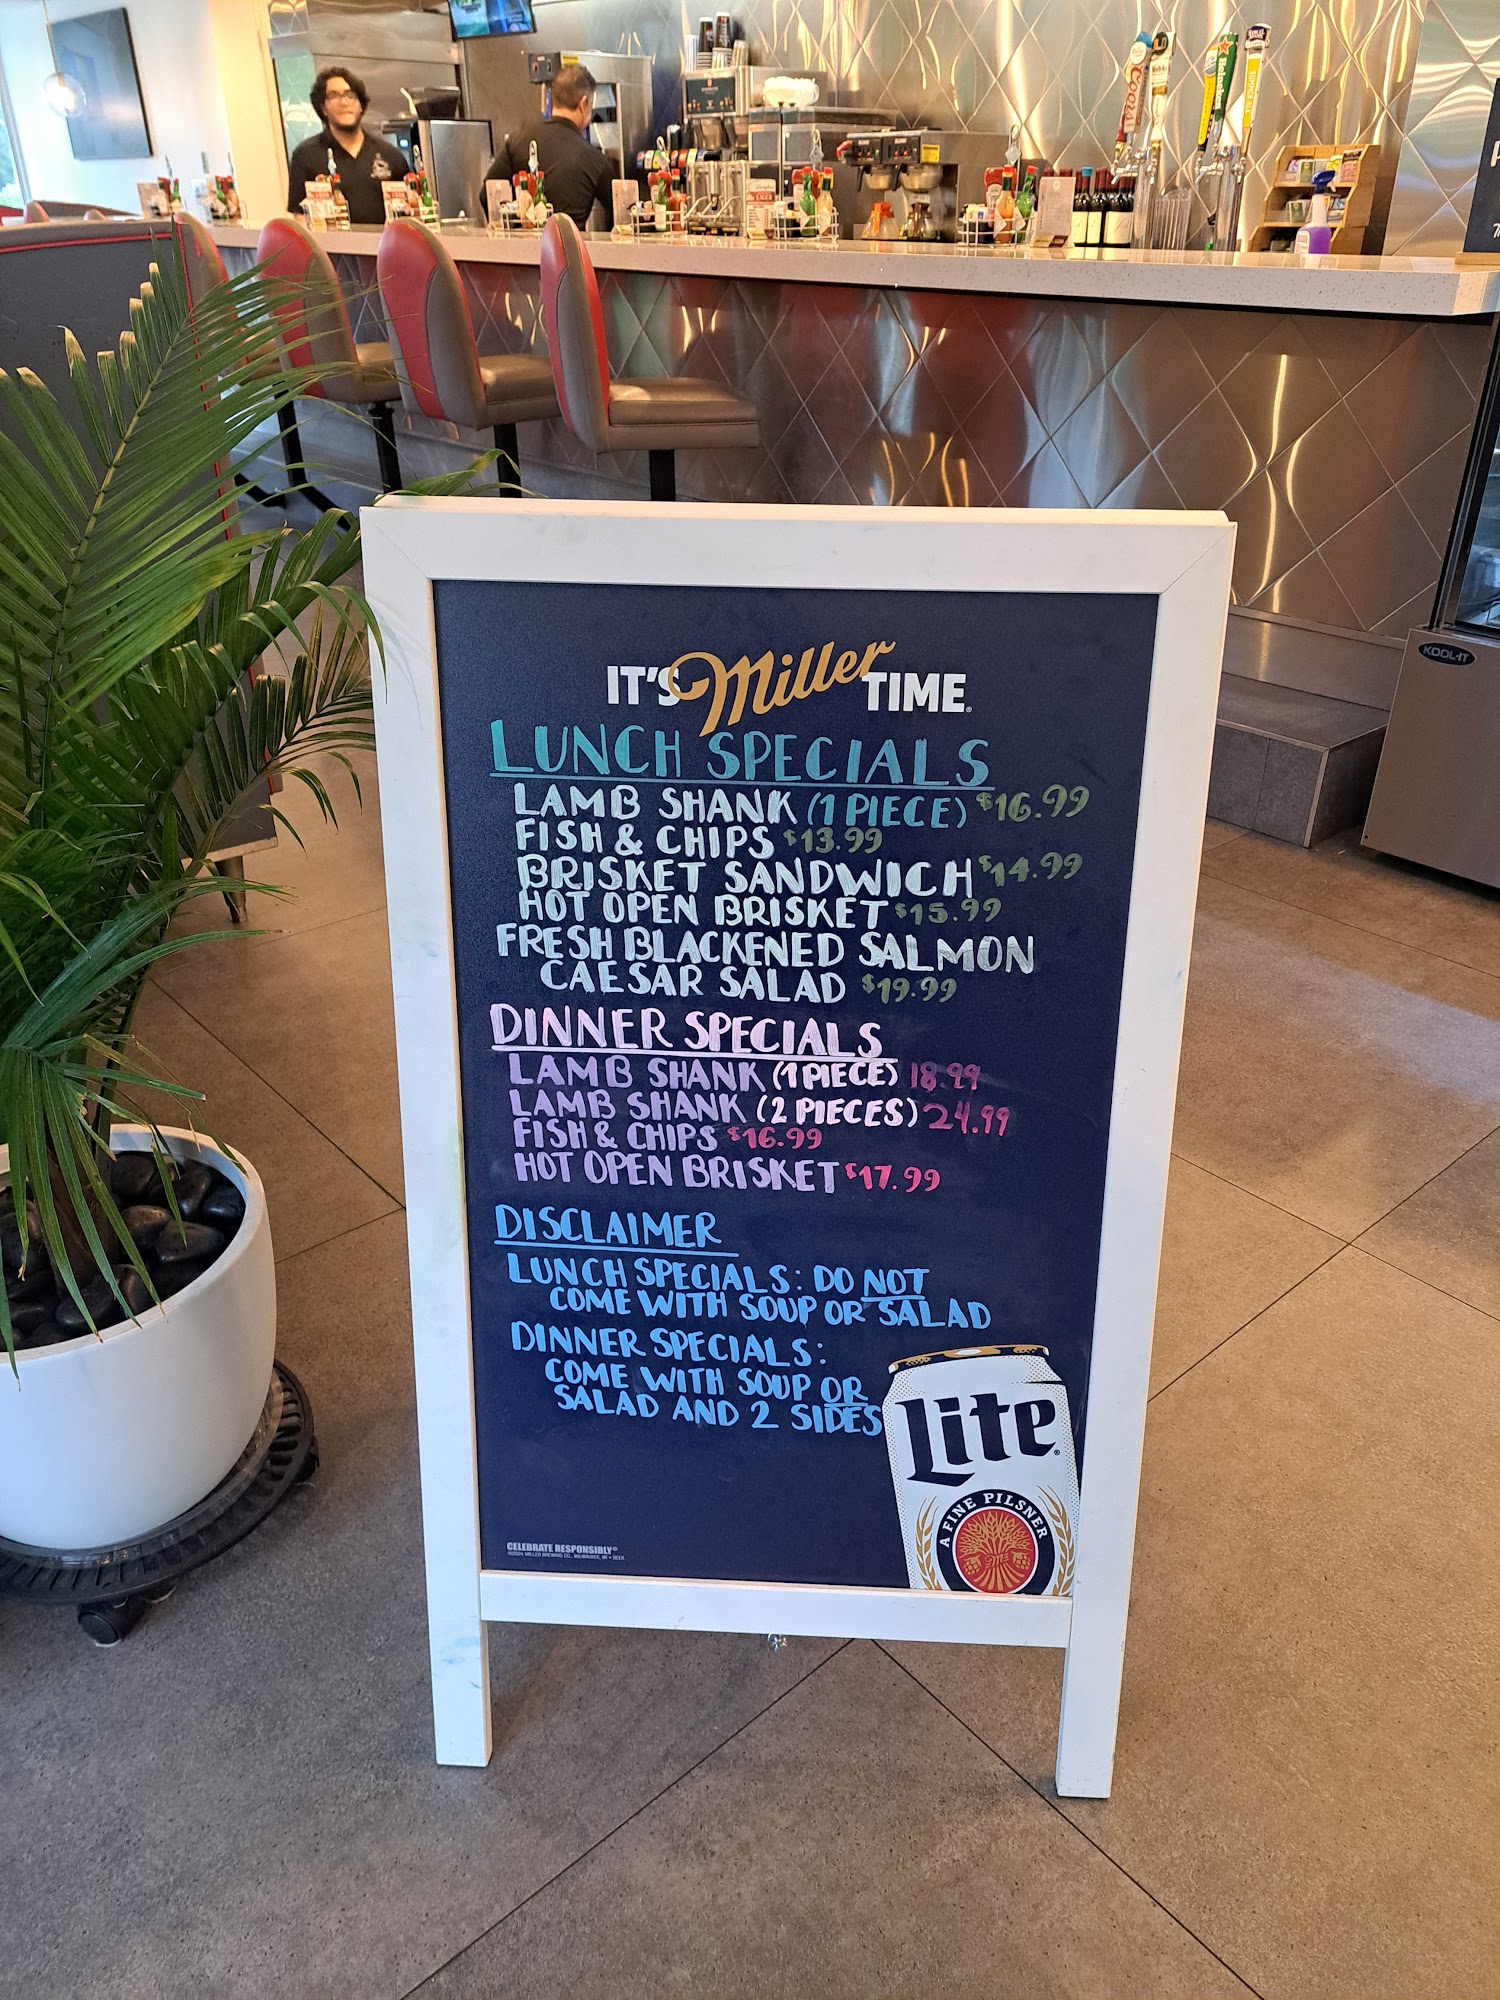 IT'S Miller TIME
LUNCH SPECIALS
LAMB SHANK (1 PIECE) $16.99
FISH & CHIPS $13.99
BRISKET SANDWICH $14.99
HOT OPEN BRISKET $15.99
FRESH BLACKENED SALMON
CAESAR SALAD $19.99
DINNER SPECIALS
LAMB SHANK (1 PIECE) 18.99
LAMB SHANK (2 PIECES) 24.99
FISH & CHIPS $16.99
HOT OPEN BRISKET $17.99
DISCLAIMER
LUNCH SPECIALS: DO NOT
COME WITH SOUP OR SALAD
DINNER SPECIALS:
COME WITH SOUP OR
SALAD AND 2 SIDES
Lite
A FINE PILSNER
CELEBRATE RESPONSIBLY®
©2024 MILLER BREWING CO., MILWAUKEE, WI • BEER
KOOL-IT
Heineken